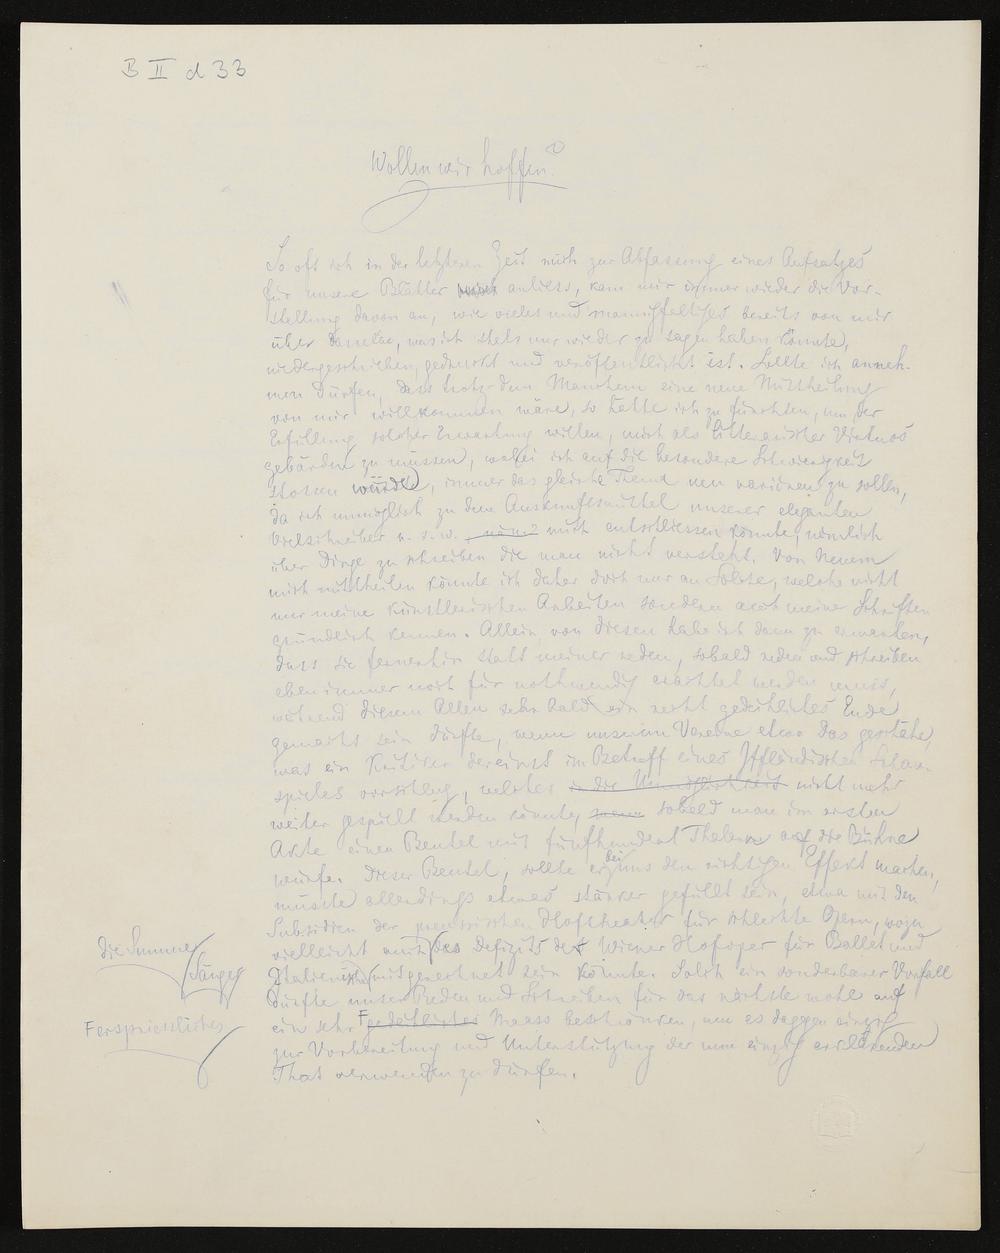 B II d 33
Wollen wir hoffen?
So oft ich in der letzteren Zeit mich zur Abfassung eines Aufsatzes
für unsere Blätter anliess, kam mir immer wieder die Vor-
stellung davon an, wie vieles und mannichfaltiges bereits von mir
über dasselbe, was ich stets nur wieder zu sagen haben könnte,
niedergeschrieben, gedruckt und veröffentlicht ist. Sollte ich anneh-
men dürfen, dass trotz dem Manchem eine neue Mittheilung
von mir willkommen wäre, so hätte ich zu fürchten, um der
Erfüllung solcher Erwartung willen, mich als litterarischer Virtuos
gebärden zu müssen, wobei ich auf die besondere Schwierigkeit
stossen würde, immer das gleiche Thema neu variiren zu sollen,
da ich unmöglich zu dem Auskunftsmittel unserer eleganten
Vielschreiber u. s. w. mich entschliessen könnte, nämlich
über Dinge zu schreiben die man nicht versteht. Von Neuem
mich mittheilen könnte ich daher doch nur an Solche, welche nicht
nur meine künstlerischen Arbeiten sondern auch meine Schriften
gründlich kennen. Allein von diesen habe ich dann zu erwarten,
dass sie fernerhin statt meiner reden, sobald reden und schreiben
eben immer noch für nothwendig erachtet werden muss,
während diesem Allen sehr bald ein recht gedeihliches Ende
gemacht sein dürfte, wenn unserem Vereine etwa das geschähe,
was ein Kritiker dereinst im Betreff eines Iffländischen Schau-
spieles vorschlug, welches in die Unmöglichkeit nicht mehr
weiter gespielt werden könnte, wenn sobald man im ersten
Akte einen Beutel mit fünfhundert Thalern auf die Bühne
würfe. Dieser Beutel, sollte er bei uns den richtigen Effekt machen,
müsste allerdings etwas stärker gefüllt sein, etwa mit den
Subsidien der preussischen Hoftheater für schlechte Opern, wozu
vielleicht auch des Defizits der Wiener Hofoper für Ballet und
die Summe
Sänger
Italienische mitgerechnet sein könnte. Solch ein sonderbarer Vorfall
dürfte unser Reden und Schreiben für das nächste wohl auf
ein sehr F gedeihliches Maass beschränken, um es dagegen einzig
F erspriessliches
zur Vorbereitung und Unterstützung der nun einzig erklärenden
That verwenden zu dürfen.